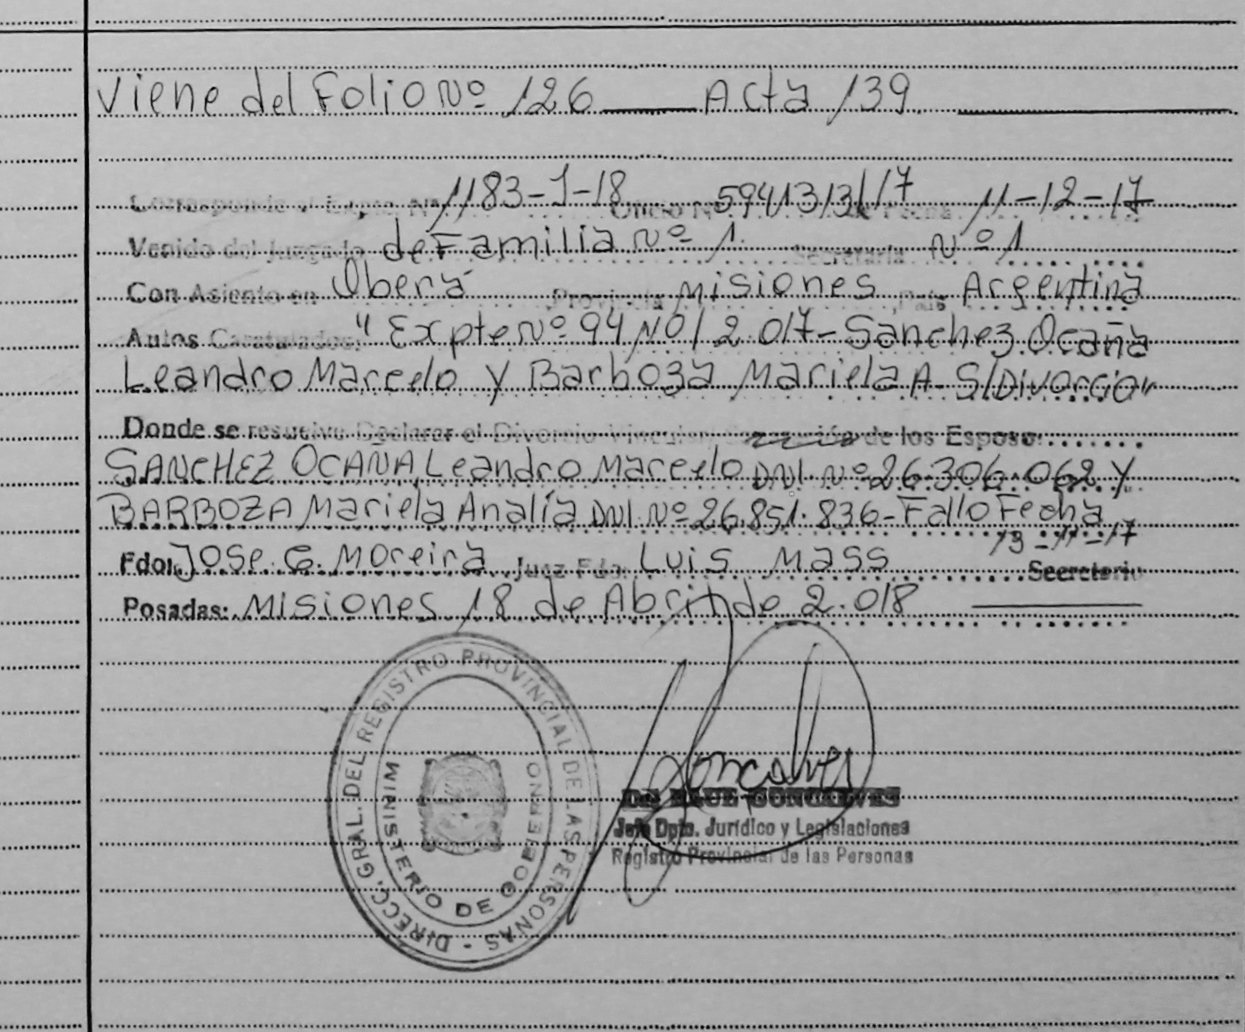 Viene del Folio Nº 126 Acta 139
Corresponde al Expte. Nº 1183-J-18 Oficio Nº 59413131/17 de Fecha 11-12-17
Venido del Juzgado de Familia Nº 1. Secretaria Nº 1
Con Asiento en Oberá Provincia Misiones Pais Argentina
Autos Caratulados: "Expte Nº 94 NO/2.017- Sanchez Ocaña
Leandro Marcelo y Barboza Mariela A. S/Divorcio"
Donde se resuelve Declarar el Divorcio Vincular de los Esposo:
SANCHEZ OCAÑA Leandro Marcelo DNI. Nº 26.306.062 Y
BARBOZA Mariela Analía DNI. Nº 26.851.836- Fallo Fecha
13-11-17
Fdo: Jose G. Moreira Juez Fdo. Luis Mass Secretario
Posadas: Misiones 18 de Abril de 2.018
DIRECC. GRAL. DEL REGISTRO PROVINCIAL DE LAS PERSONAS -
MINISTERIO DE GOBIERNO
Goncalves
Dr RAUL GONCALVES
Jefe Dpto. Jurídico y Legislaciones
Registro Provincial de las Personas